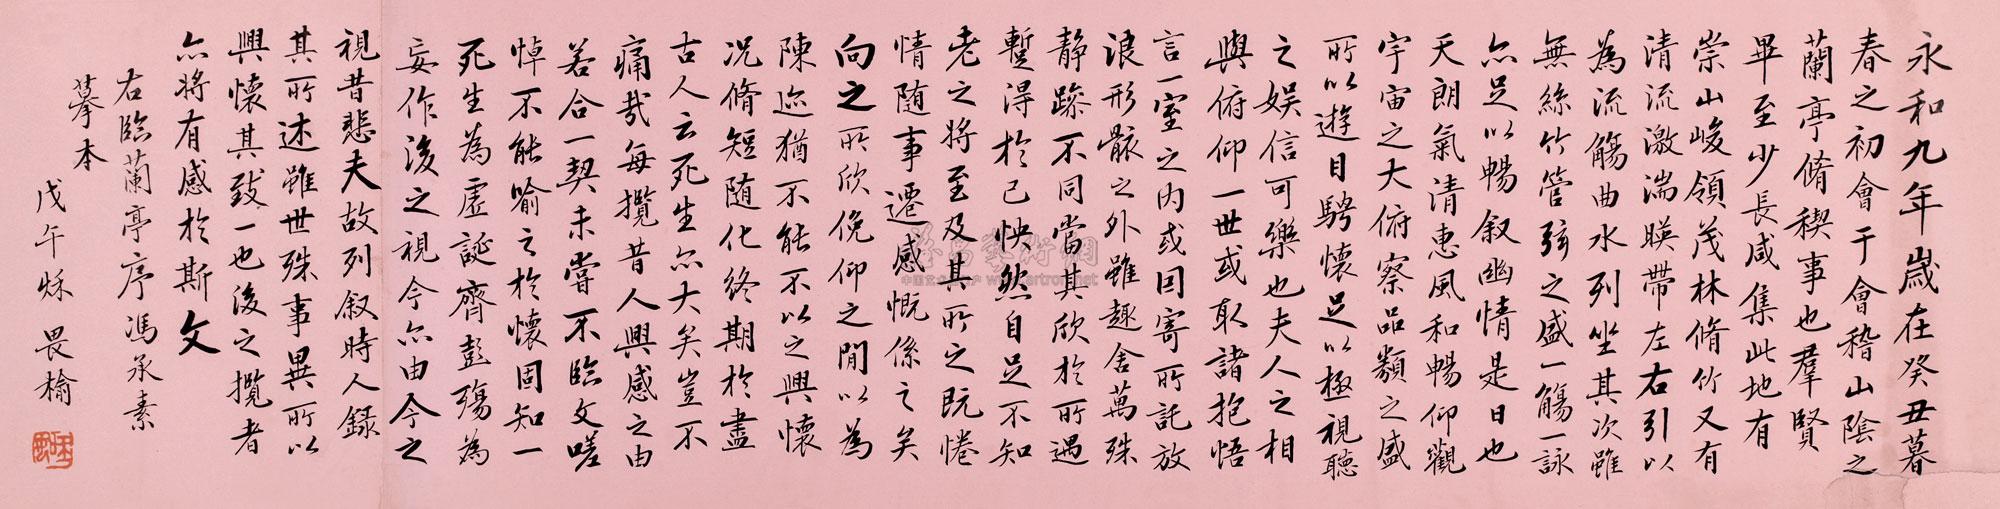 永和九年歲在癸丑暮
春之初會于會稽山陰之
蘭亭脩稧事也羣賢
畢至少長咸集此地有
崇山峻領茂林脩竹又有
清流激湍暎帶左右引以
為流觴曲水列坐其次雖
無絲竹管弦之盛一觴一詠
亦足以暢叙幽情是日也
天朗氣清惠風和暢仰觀
宇宙之大俯察品類之盛
所以遊目騁懷足以極視聽
之娛信可樂也夫人之相
與俯仰一世或取諸抱悟
言一室之內或因寄所託放
浪形骸之外雖趣舍萬殊
静躁不同當其欣於所遇
蹔得於己怏然自足不知
老之將至及其所之既惓
情随事遷感慨係之矣
向之所欣俛仰之間以為
陳迹猶不能不以之興懷
况脩短随化終期於盡
古人云死生亦大矣豈不
痛哉每攬昔人興感之由
若合一契未嘗不臨文嗟
悼不能喻之於懷固知一
死生為虛誕齊彭殤為
妄作後之視今亦由今之
視昔悲夫故列叙時人録
其所述雖世殊事異所以
興懷其致一也後之攬者
亦將有感於斯文
右臨蘭亭序馮承素
摹本
戊午秌 畏榆